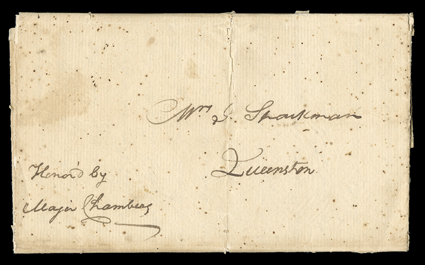 Mrs J. Sparkman
Queenston
Honor'd by
Major Chambers